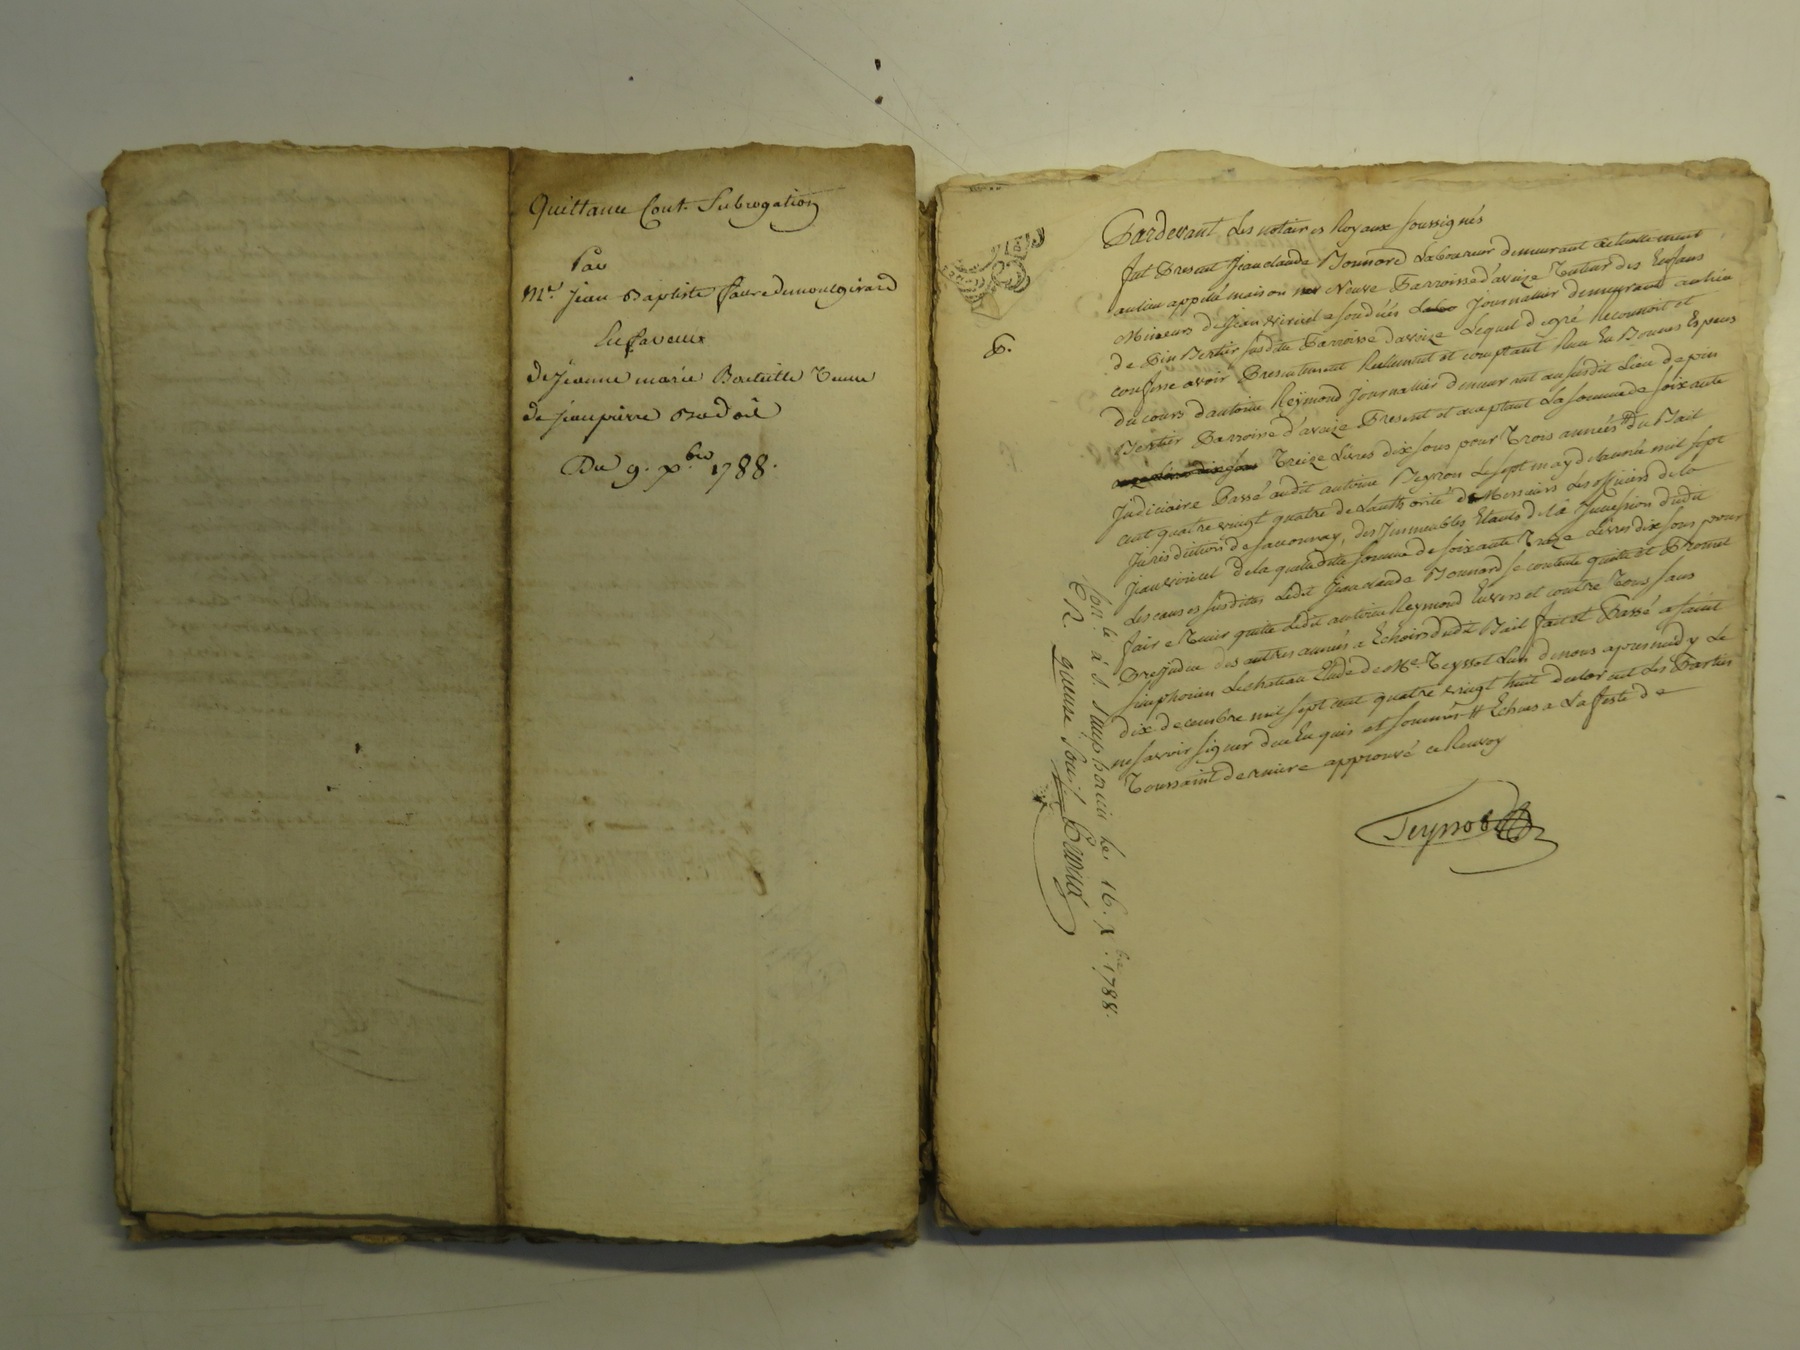 Quittance Cont. Subrogation
Par
Mr. jean Baptiste faure demontgirard
En faveur
de jeanne marie Bouteille veuve
de jean pierre Badoil
Du 9. xbre 1788.
Pardevant Les notaires Royaux soussignés
fut Present Jean claude Bonnard Laboureur demeurant
au lieu appellé maison neuve Parroisse d'aveize Tuteur des Enfans
Mineurs de Jean viricel Journallier demeurant au lieu
de Pin Bertier susditte Parroisse daveize Lequel de gré Reconnoit et
confesse avoir Presentement Reelement et comptant Recu En Bonnes Especes
du cours dantoine Reymond journallier demeurant au susdit Lieu de pin
Bertier Parroisse d'aveize Present et acceptant La somme de soixante
Treize Livres dix sous pour Trois années # du Bail
judiciaire Passé audit antoine Reymon Le sept may de lannée mil sept
cent quatre vingt quatre de Lauthorité de Messieurs Les officiers de la
Jurisdiction de , des Immeubles Etants de la succession dudit
jean viricel de la quelle ditte somme de soixante Treze Livres dix sous pour
Les causes susdittes Ledit Jean claude Bonnard se contente quitte et Promet
faire Tenir quitte Ledit antoine Reymond Envers et contre Tous sans
Prejudice des autres années a Echoir dudit Bail fait et Passé a saint
simphorien Le chateau Etude de Me Teyssot Lun de nous apres midy Le
dix decembre mil sept cent quatre vingt huit declarant Les Parties
ne savoir signer de ce Enquis et sommés # Echues a La feste de
Toussaint derniere approuvé ce Renvoy
Teyssot
P.
Con. lé à S. Simphorien le 16. Xbre. 1788.
R. quinze sous